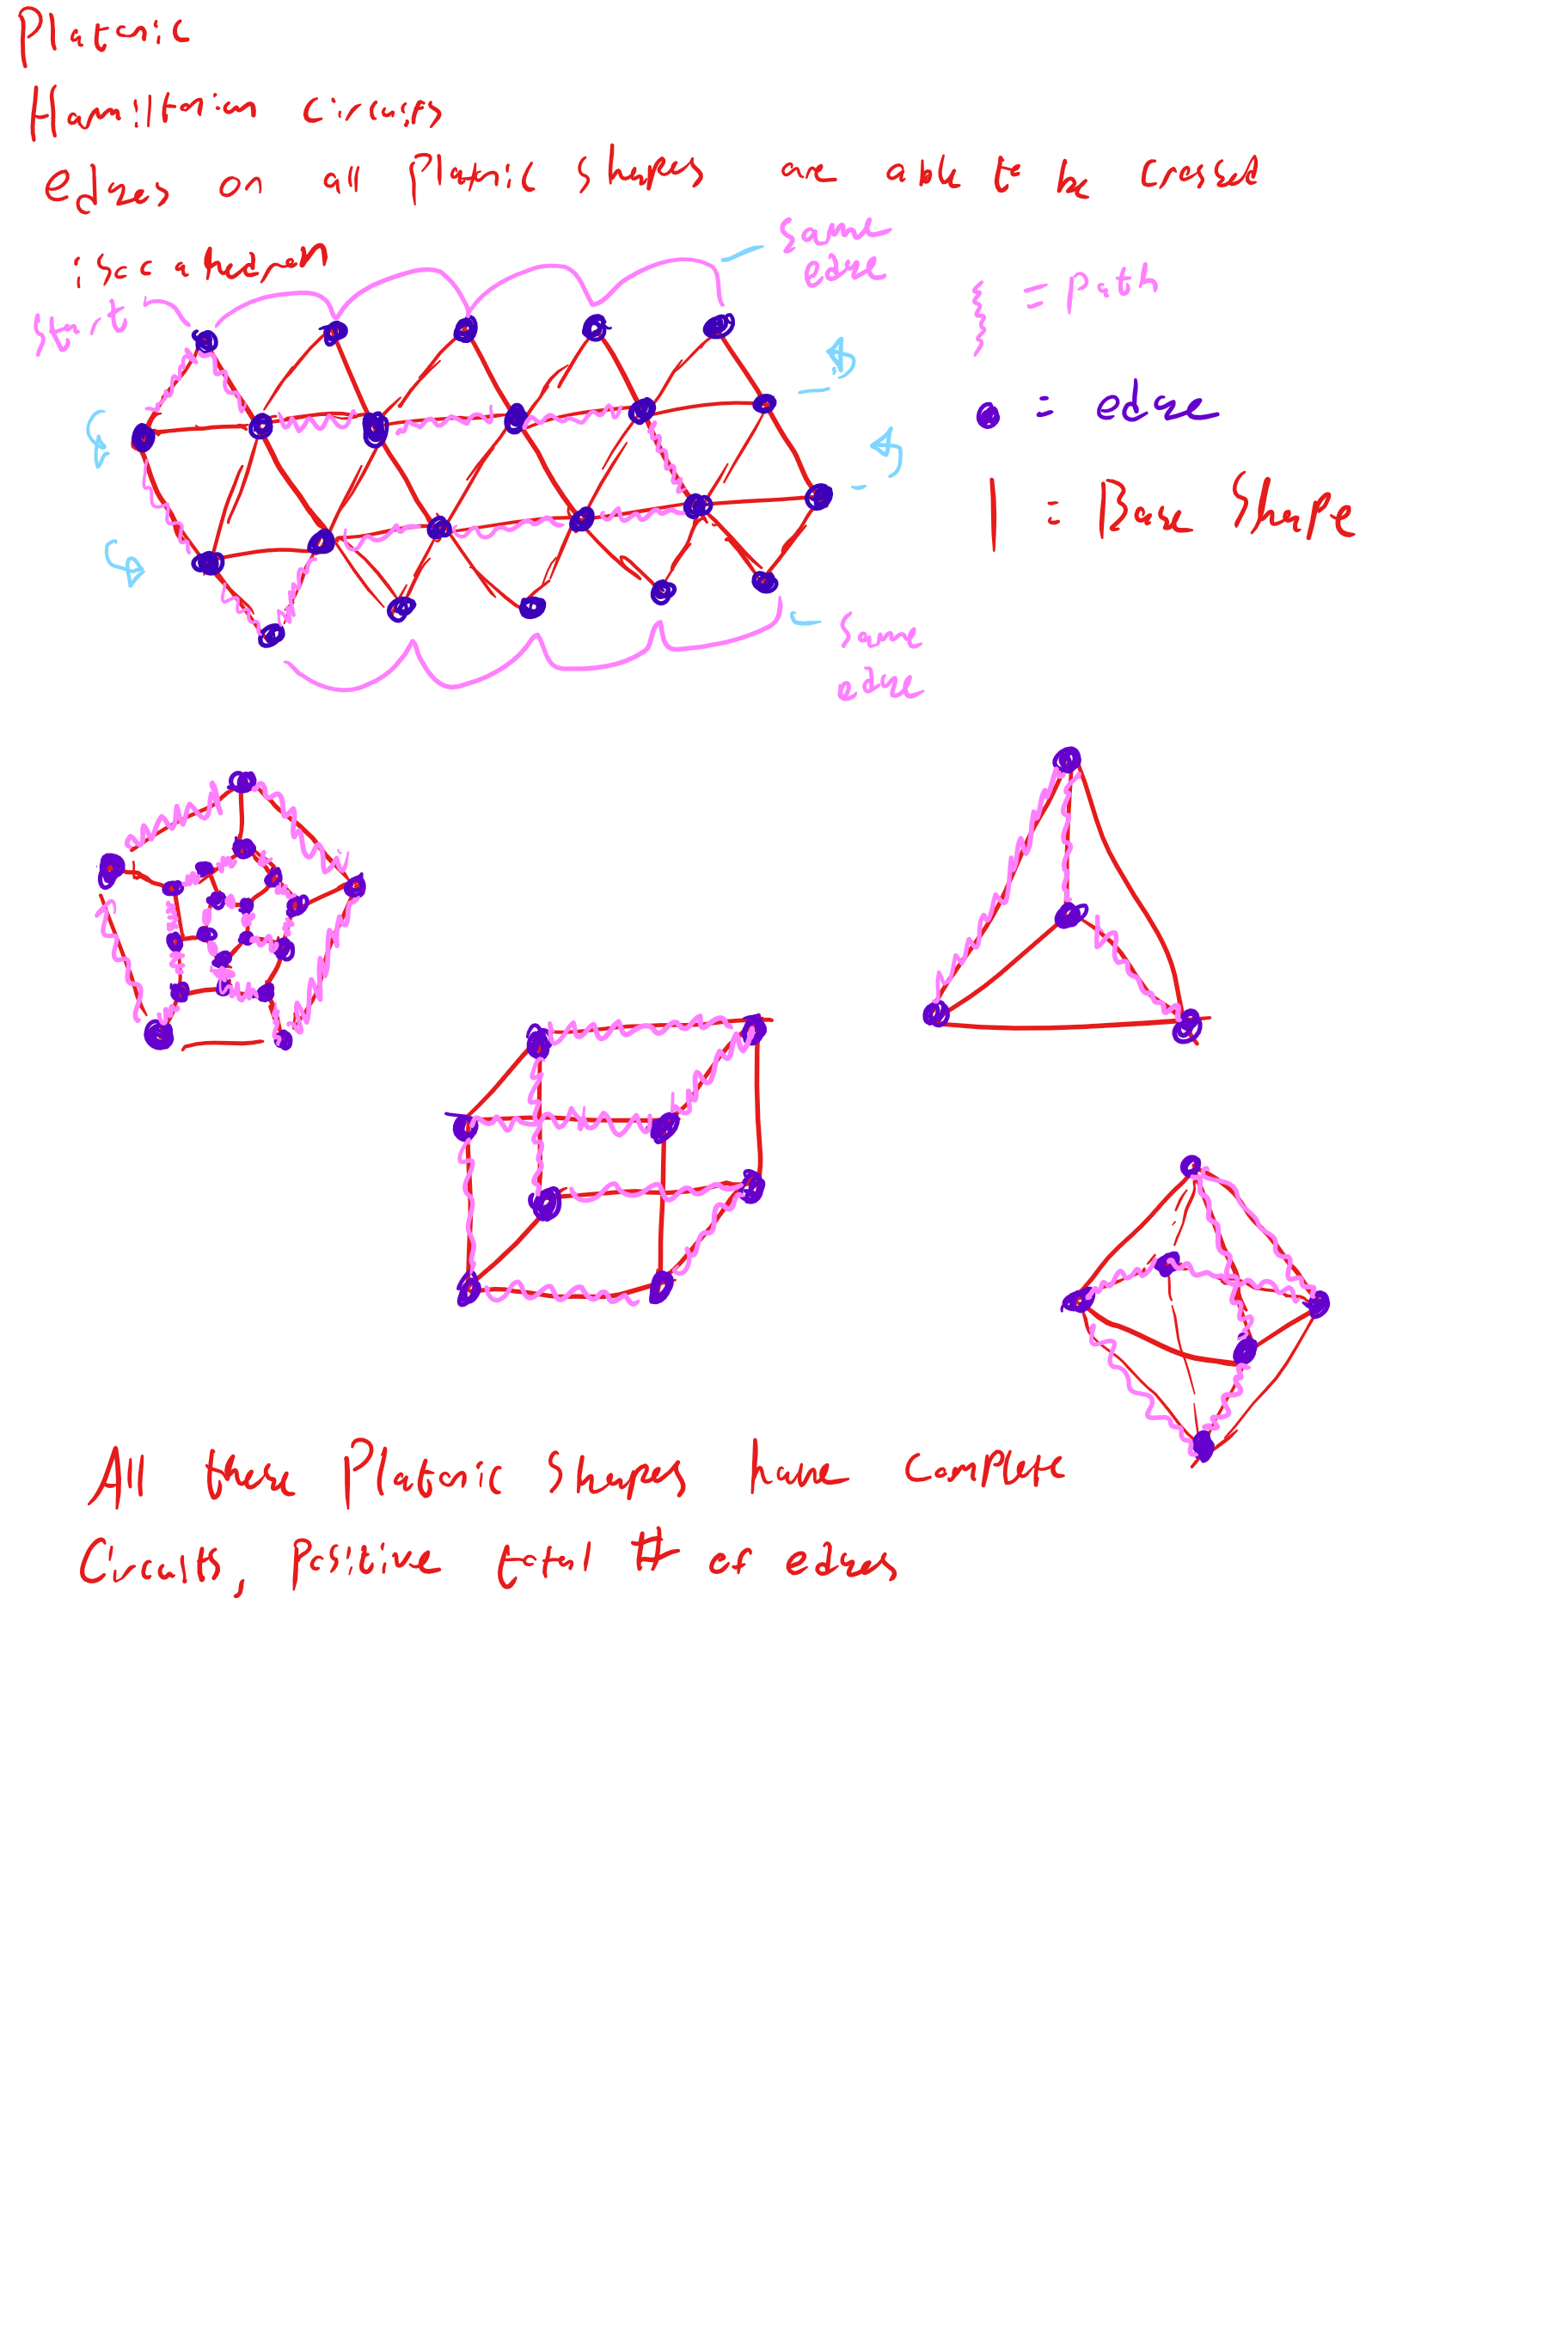 Platonic
Hamiltonian circuits
edges on all Platonic shapes are able to be crossed
isocahedron
start
same
edge
= Path
= edge
= Base Shape
same
edge
All these Platonic shapes have complete
Circuits, Positive total # of edges